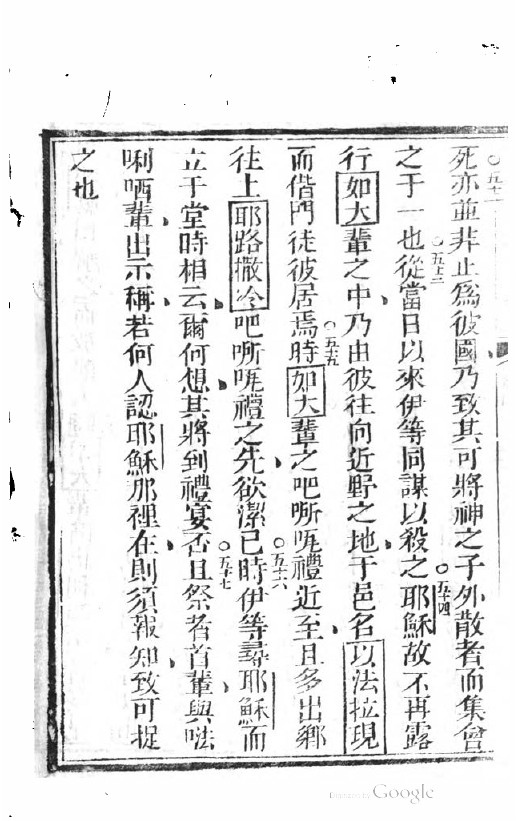 死亦並非止爲彼國乃致其可將神之子外散者而集會
之于一也從當日以來伊等同謀以殺之耶穌故不再露
行如大輩之中乃由彼往向近野之地于邑名以法拉現
而偕門徒彼居焉時如大輩之吧㗭呃禮近至且多出鄉
往上耶路撒冷吧㗭呃禮之先欲潔已時伊等尋耶穌而
立于堂時相云爾何想其將到禮宴否且祭者首輩與𠵽
唎哂輩出示稱若何人認耶穌那裡在則須報知致可捉
之也
五十二
五十三
五十四
五十五
五十六
五十七
Digitized by Google